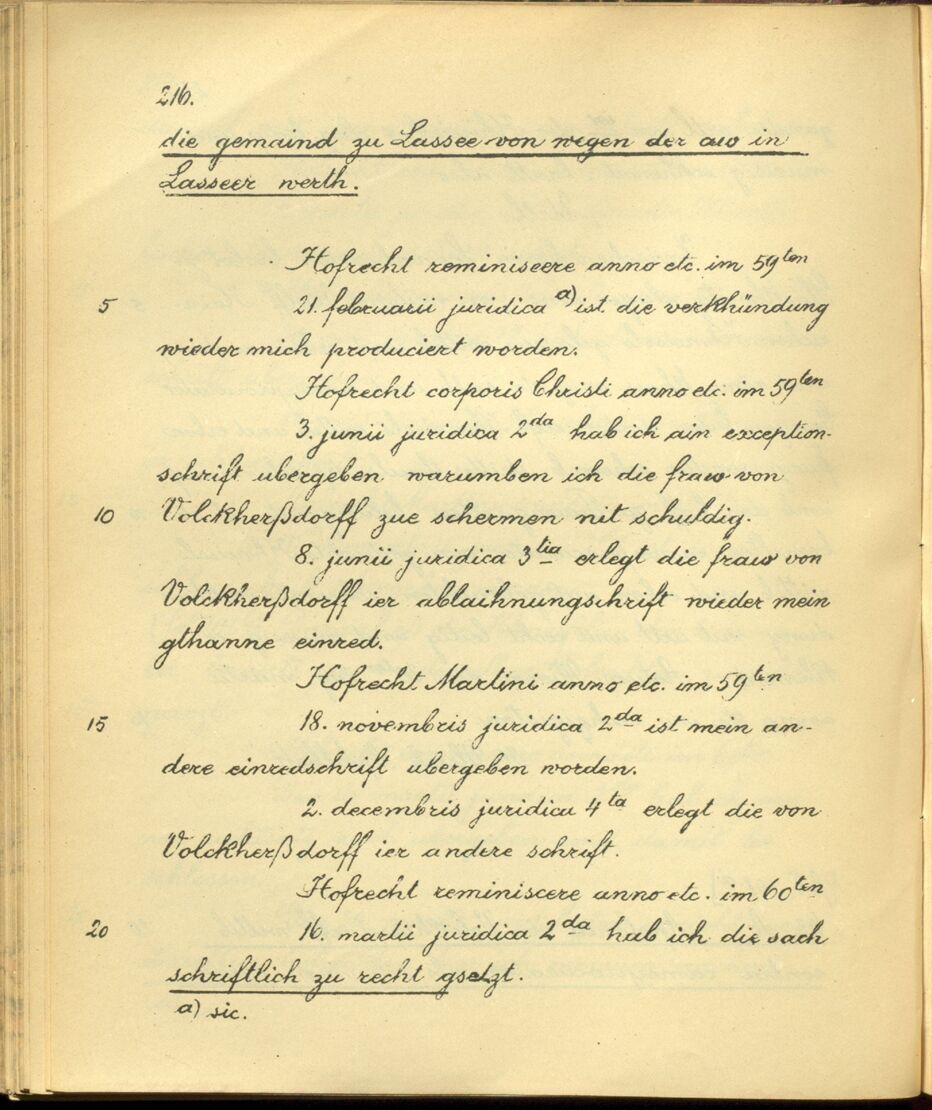 216.
die gemaind zu Lassee von wegen der aw in
Lasseer werth.
Hofrecht reminiscere anno etc. im 59ten
5 21. februarii juridica a) ist die verkhündung
wieder mich produciert worden.
Hofrecht corporis Christi anno etc. im 59ten
3. junii juridica 2da hab ich ain exception-
schrift ubergeben warumben ich die fraw von
10 Volckherßdorff zue schermen nit schuldig.
8. junii juridica 3tia erlegt die fraw von
Volckherßdorff ier ablaihnungschrift wieder mein
gthanne einred.
Hofrecht Martini anno etc. im 59ten
15 18. novembris juridica 2da ist mein an-
dere einredschrift ubergeben worden.
2. decembris juridica 4ta erlegt die von
Volckherßdorff ier andere schrift.
Hofrecht reminiscere anno etc. im 60ten
20 16. martii juridica 2da hab ich die sach
schriftlich zu recht gsetzt.
a) sic.